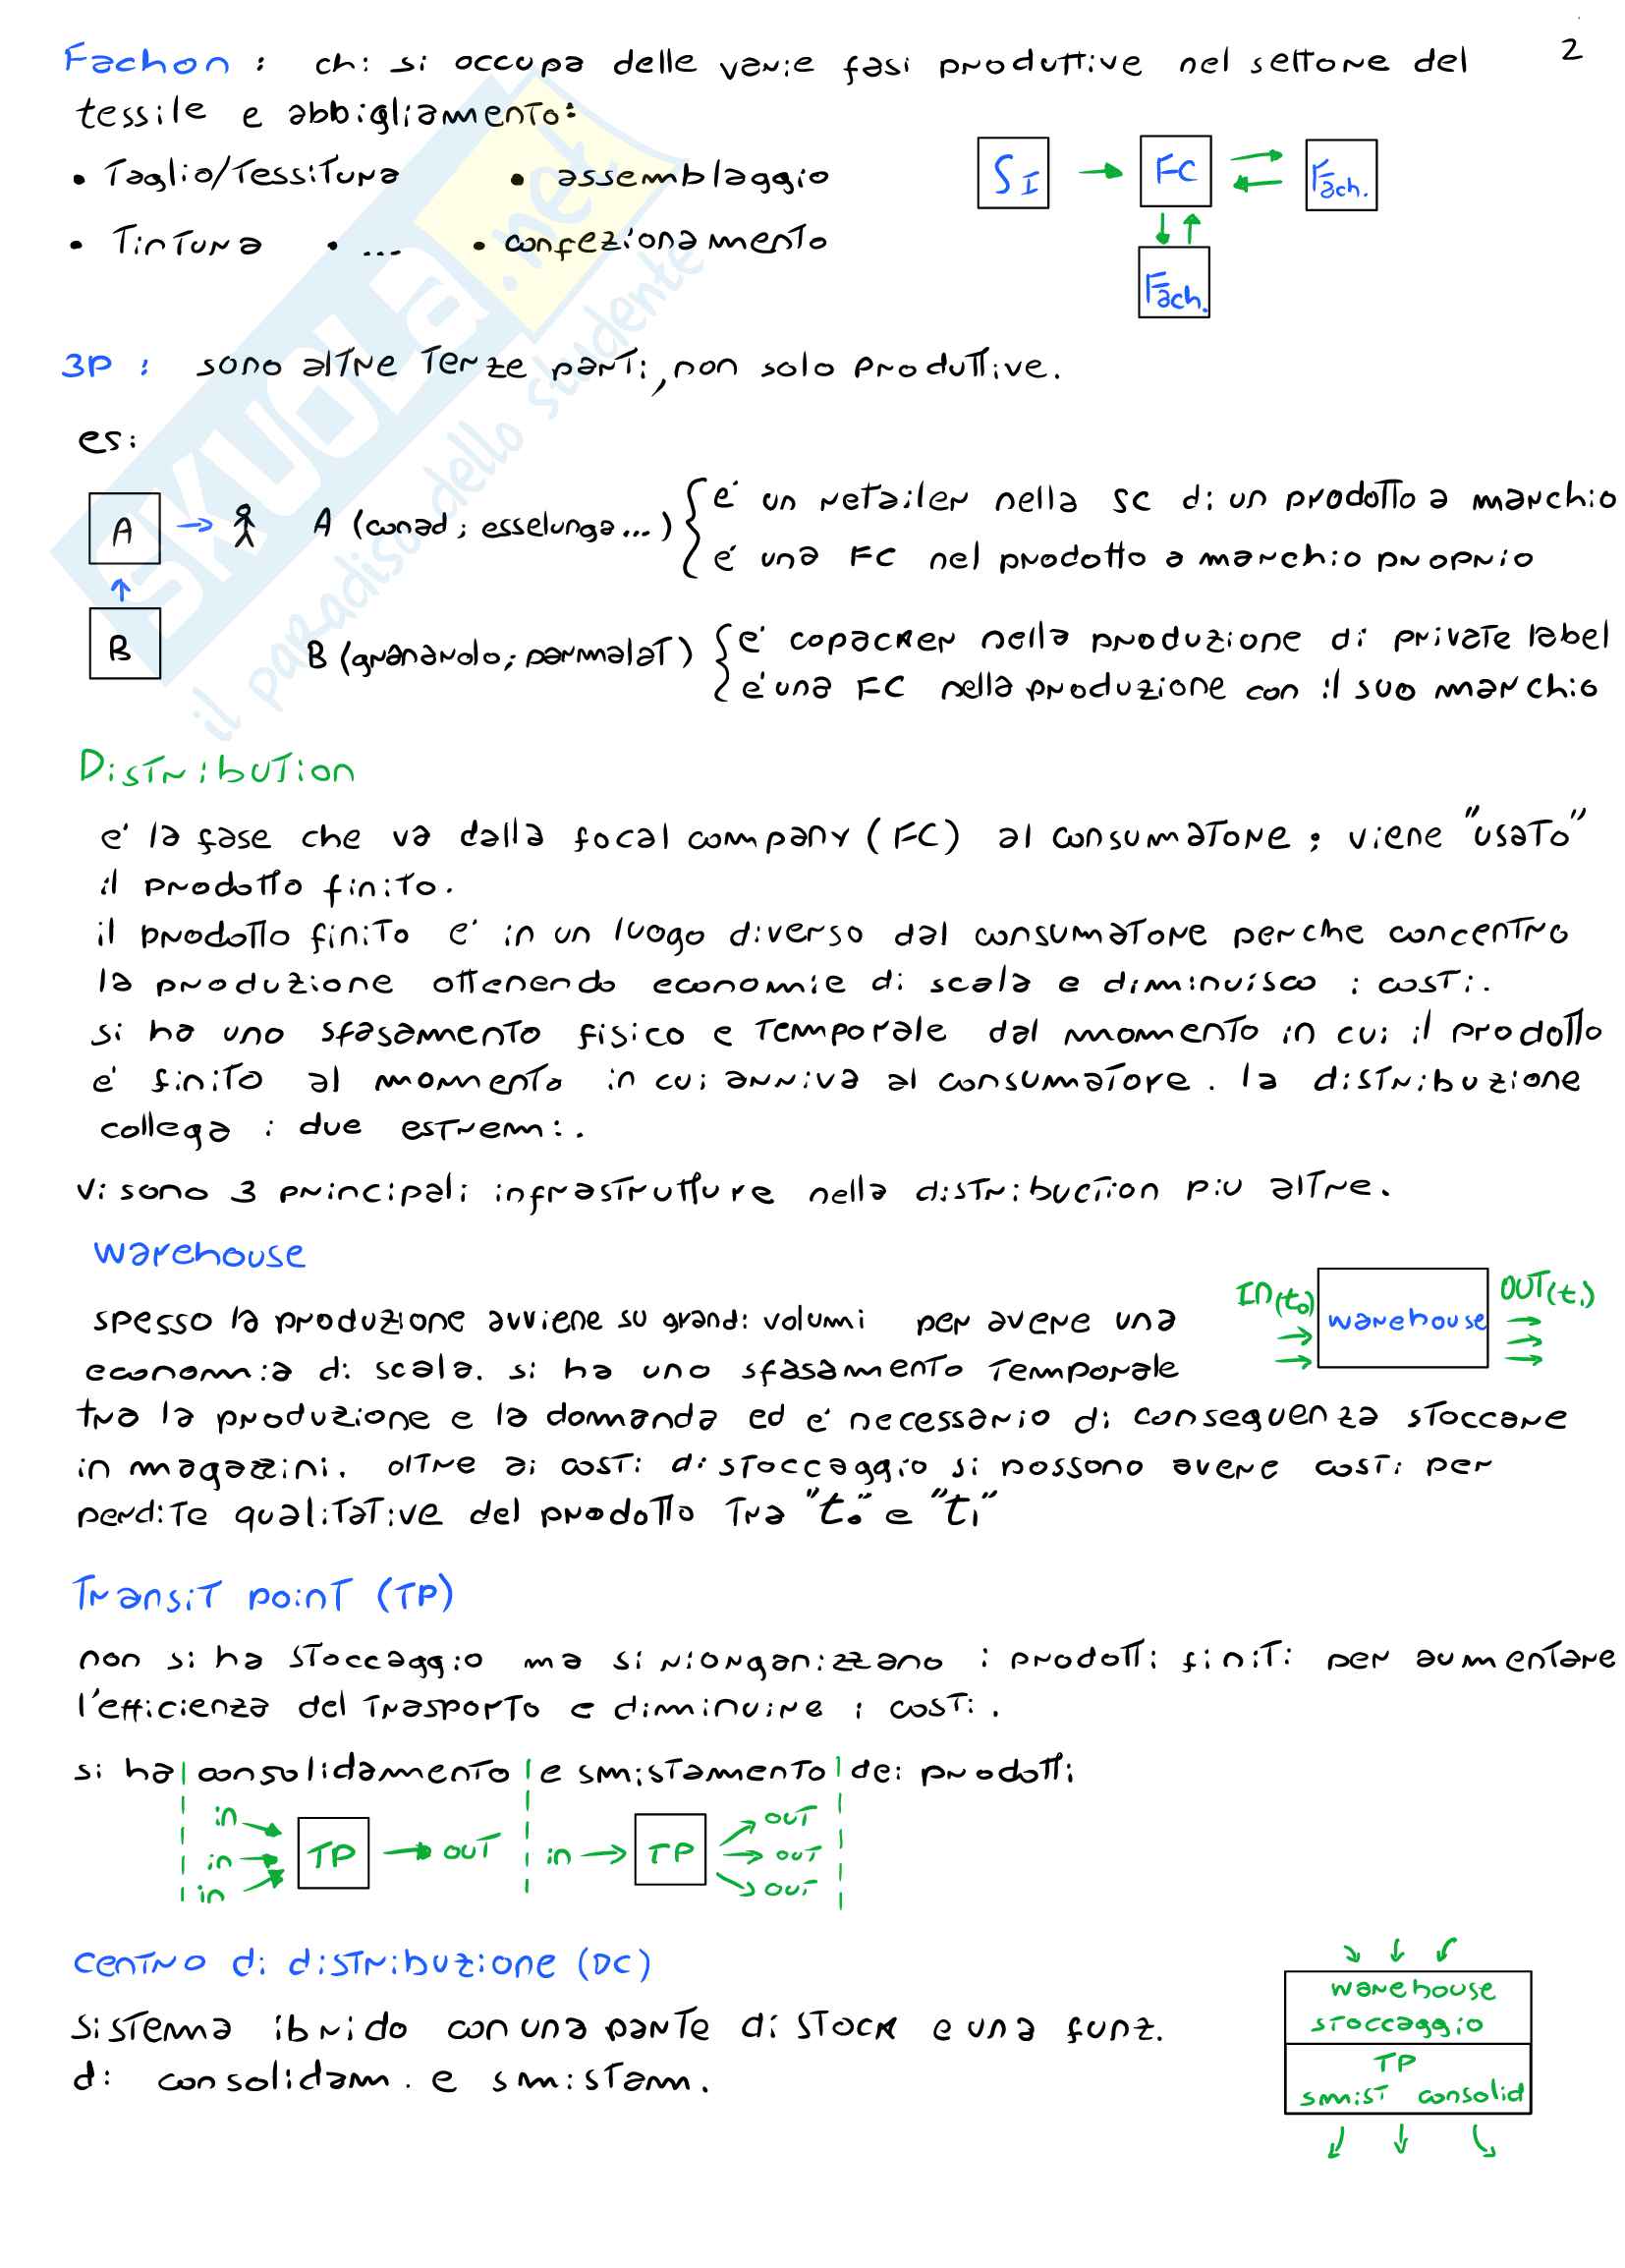 Fachon : chi si occupa delle varie fasi produttive nel settore del
2
tessile e abbigliamento:
• Taglio/Tessitura • assemblaggio
• Tintura • ... • confezionamento
SI → FC ⇄ Fach.
Fach.
3P : sono altre terze parti, non solo produttive.
es:
A → A (conad ; esselunga ...) { e' un retailer nella SC di un prodotto a marchio
e' una FC nel prodotto a marchio proprio
B B (granarolo; parmalat) { e' copacker nella produzione di private label
e' una FC nella produzione con il suo marchio
Distribution
e' la fase che va dalla focal company (FC) al consumatore ; viene "usato"
il prodotto finito.
il prodotto finito e' in un luogo diverso dal consumatore perche concentro
la produzione ottenendo economie di scala e diminuisco i costi.
si ha uno sfasamento fisico e temporale dal momento in cui il prodotto
e' finito al momento in cui arriva al consumatore. la distribuzione
collega i due estremi.
Vi sono 3 principali infrastrutture nella distribuction piu altre.
warehouse
IN(t0) warehouse OUT(t1)
spesso la produzione avviene su grandi volumi per avere una
economia di scala. si ha uno sfasamento temporale
tra la produzione e la domanda ed e' necessario di conseguenza stoccare
in magazzini. oltre ai costi di stoccaggio si possono avere costi per
perdite qualitative del prodotto tra "t0" e "t1"
Transit point (TP)
non si ha stoccaggio ma si riorganizzano i prodotti finiti per aumentare
l'efficienza del trasporto e diminuire i costi.
si ha consolidamento e smistamento dei prodotti
in in in TP → out
in → TP out out out
centro di distribuzione (DC)
sistema ibrido con una parte di stock e una funz.
di consolidam. e smistam.
warehouse
stoccaggio
TP
smist consolid
SKUOLA.net
il paradiso dello studente